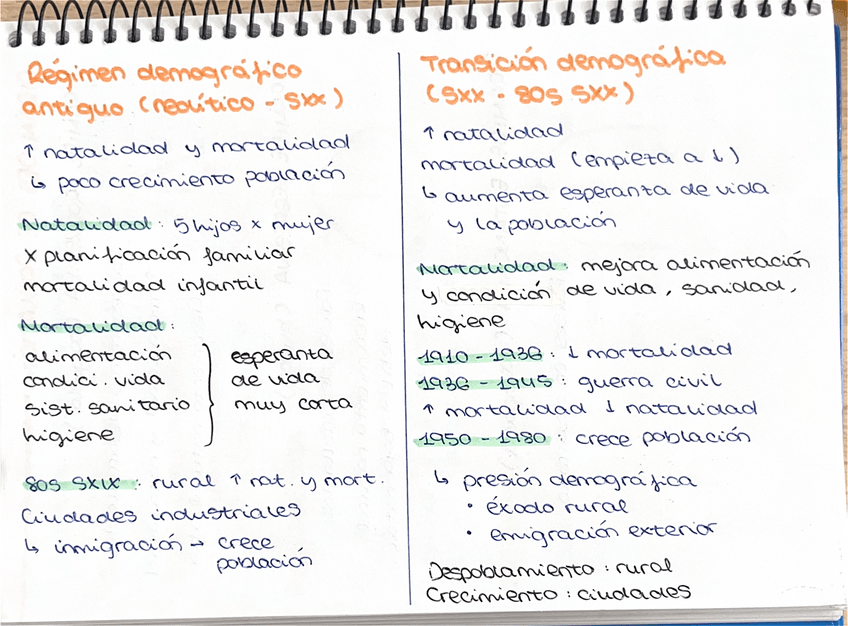 Régimen demográfico
antiguo (neolítico - SXX)
↑ natalidad y mortalidad
↳ poco crecimiento población
Natalidad: 5 hijos x mujer
X planificación familiar
mortalidad infantil
Mortalidad:
alimentación
condici. vida
sist. sanitario
higiene
esperanza
de vida
muy corta
80s SXIX: rural ↑ nat. y mort.
Ciudades industriales
↳ inmigración → crece
población
Transición demográfica
(SXX - 80s SXX)
↑ natalidad
mortalidad (empieza a ↓)
↳ aumenta esperanza de vida
y la población
Mortalidad: mejora alimentación
y condición de vida, sanidad,
higiene
1910 - 1936: ↓ mortalidad
1936 - 1945: guerra civil
↑ mortalidad ↓ natalidad
1950 - 1980: crece población
↳ presión demográfica
• éxodo rural
• emigración exterior
Despoblamiento: rural
Crecimiento: ciudades